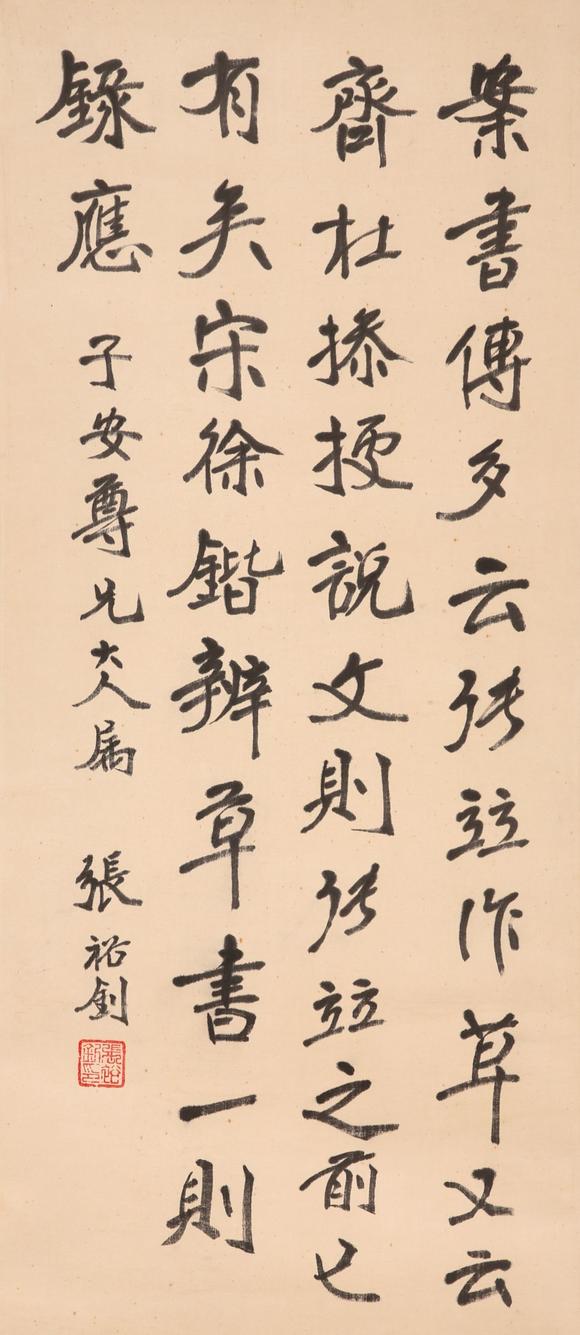 案書傳多云張竝作草又云
齊杜操據說文則張竝之前已
有矣宋徐鍇辨草書一則
錄應 子安尊兄大人属 張裕釗
張裕釗印